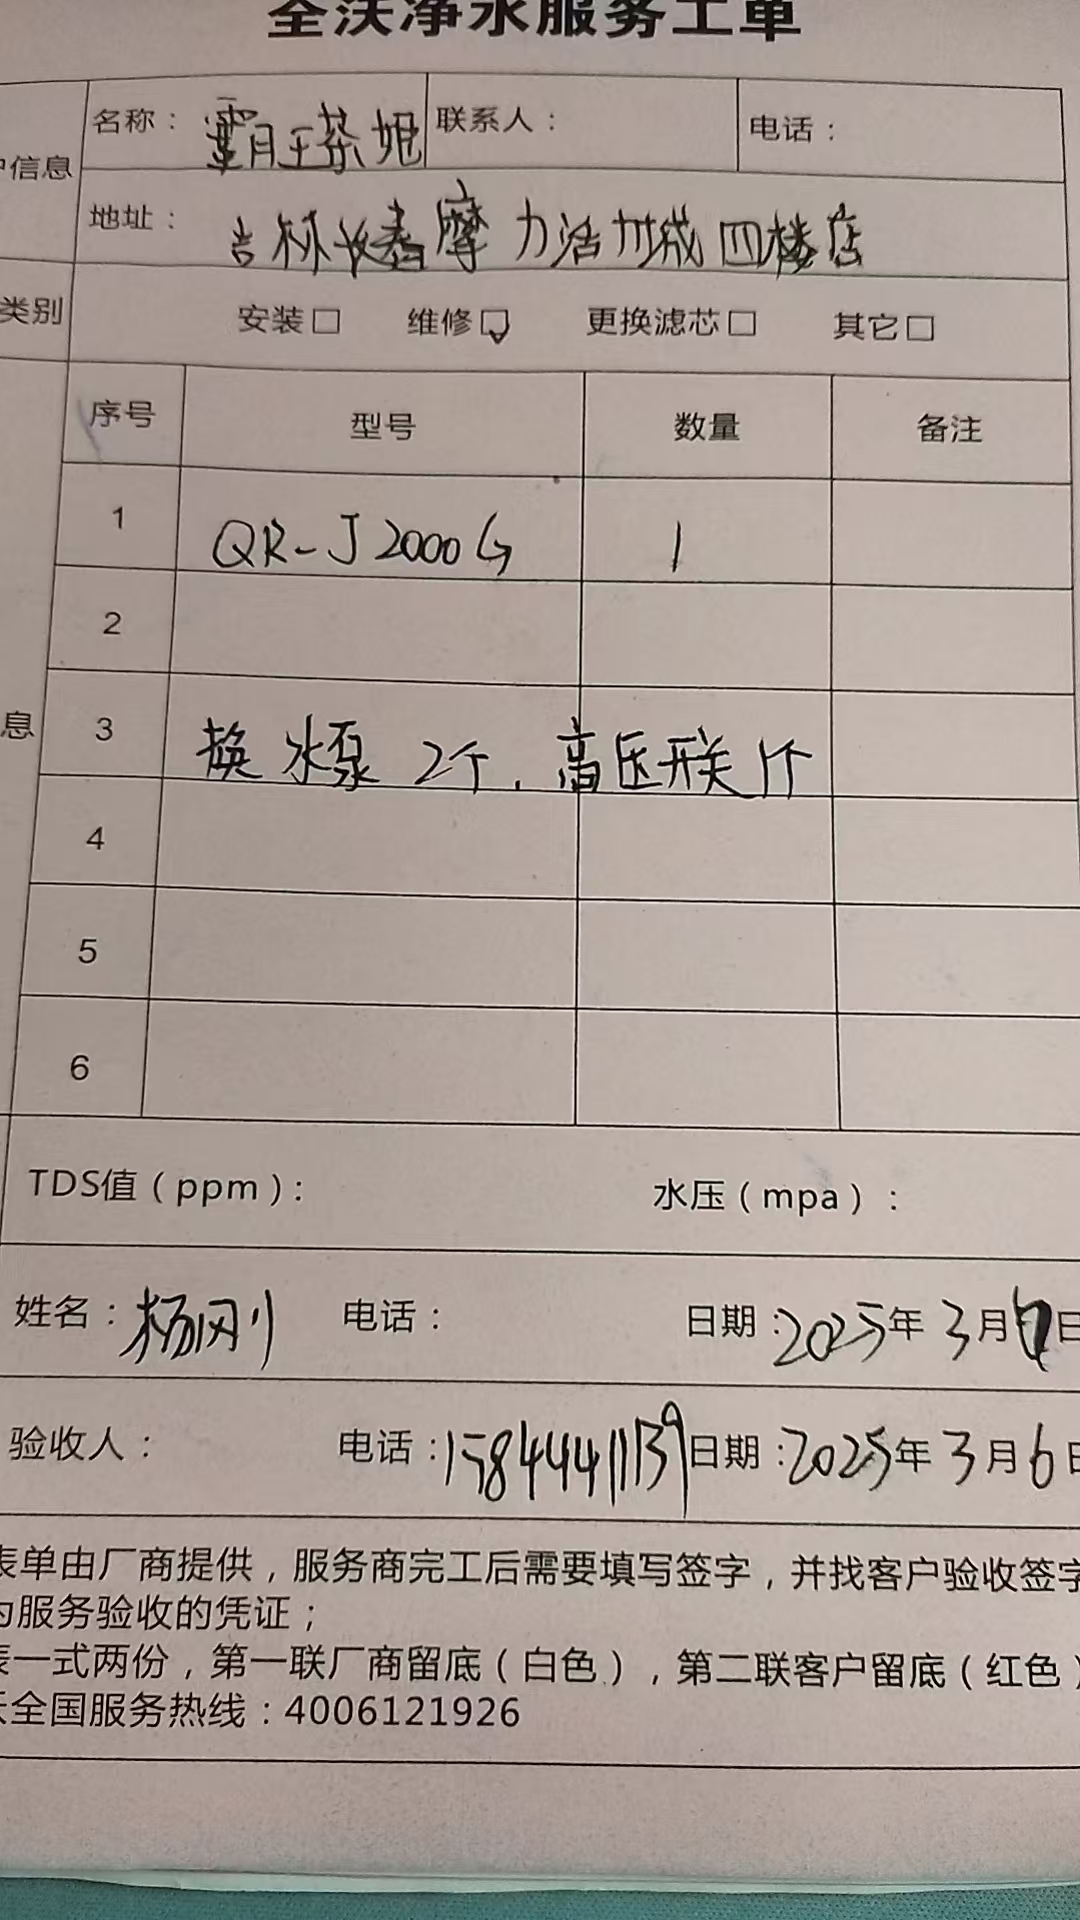 全沃净水服务工单
户信息 名称: 霸王茶姬 联系人: 电话:
地址: 吉林长春摩力活力城四楼店
类别 安装□ 维修☑ 更换滤芯□ 其它□
序号 型号 数量 备注
1 QR-J2000G 1
2
息 3 换水泵2个,高压开关1个
4
5
6
TDS值(ppm): 水压(mpa):
姓名: 杨刚 电话: 日期: 2025年3月6日
验收人: 电话: 15844441139 日期: 2025年3月6日
表单由厂商提供,服务商完工后需要填写签字,并找客户验收签字
为服务验收的凭证;
表一式两份,第一联厂商留底(白色),第二联客户留底(红色)
沃全国服务热线:4006121926